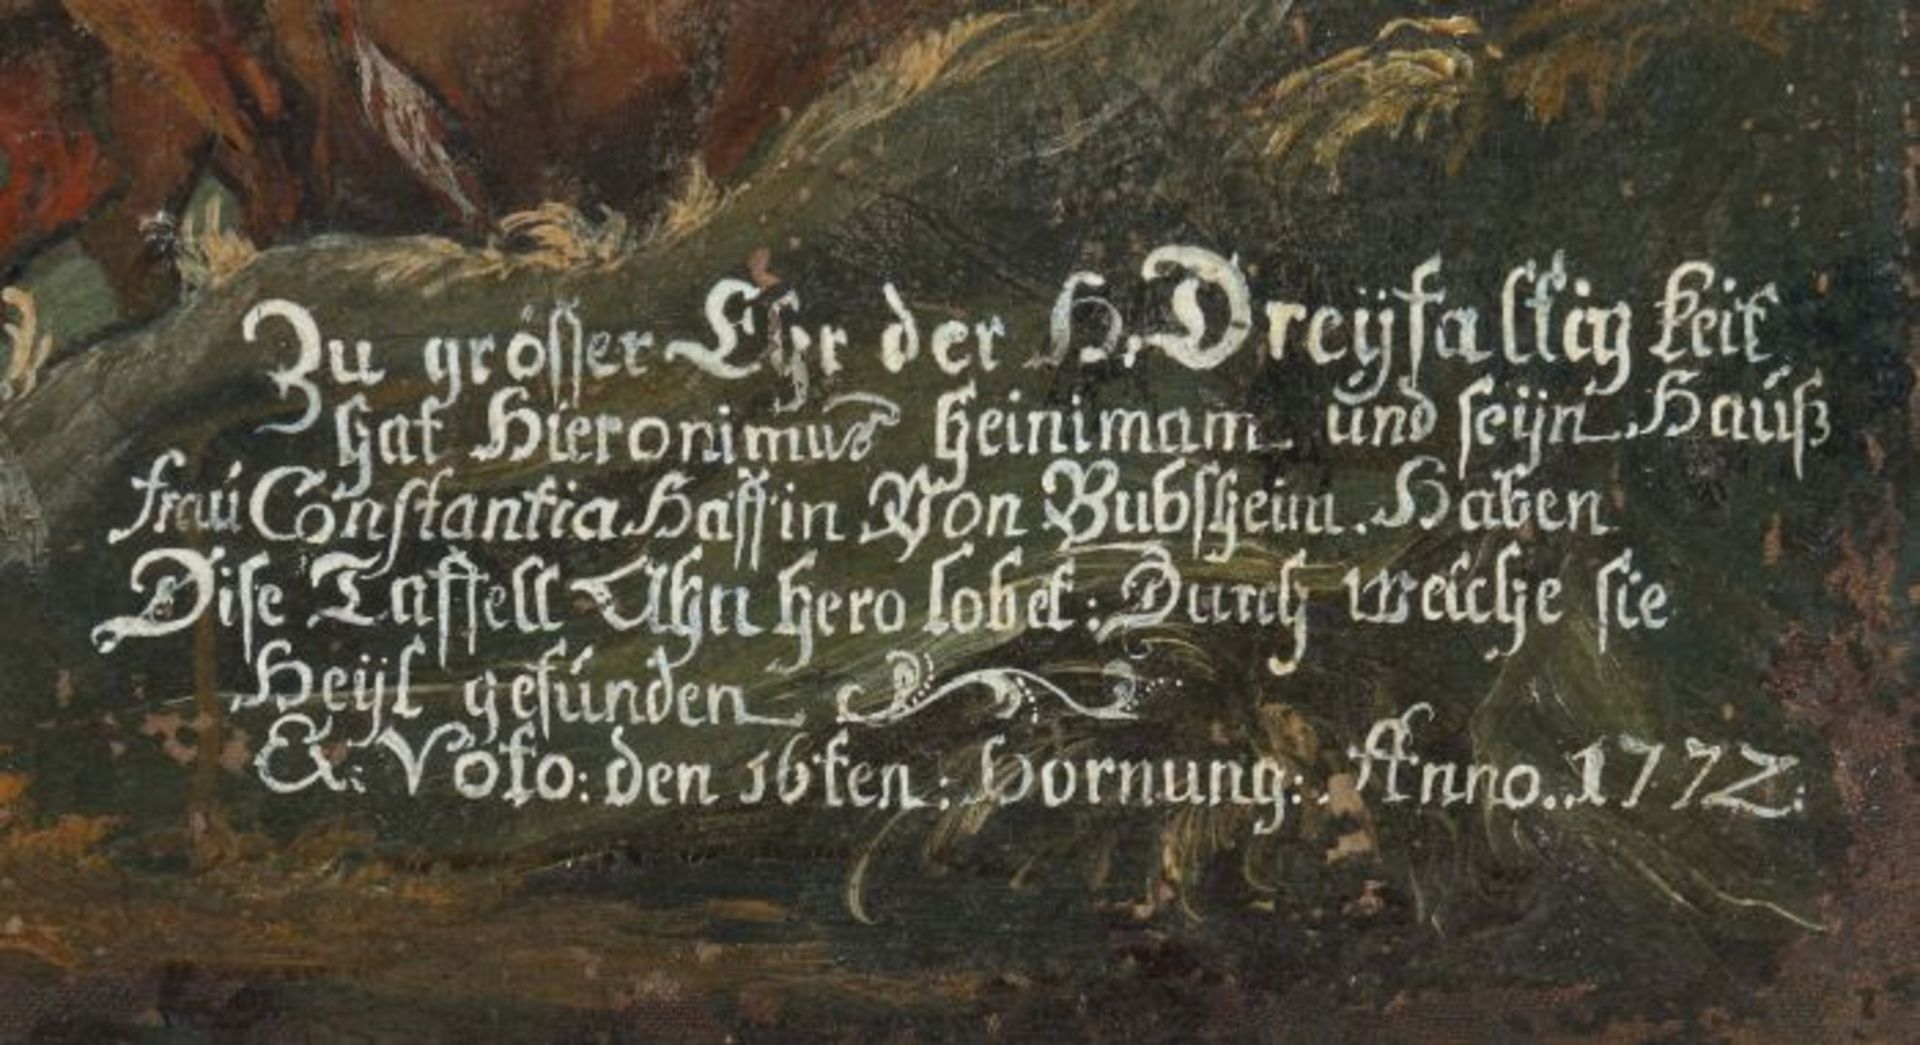 Zu grösser Ehr der H. Dreÿfaltigkeit
hat Hieronimus Heinimam und seÿn Haúß
fraú Constantia Haffin Von Bubsheim. Haben
Dise Taffell Ahn hero lobet: Durch welche sie
Heÿl gefúnden
Ex: Voto: den 16ten: Hornung: Anno. 1772: